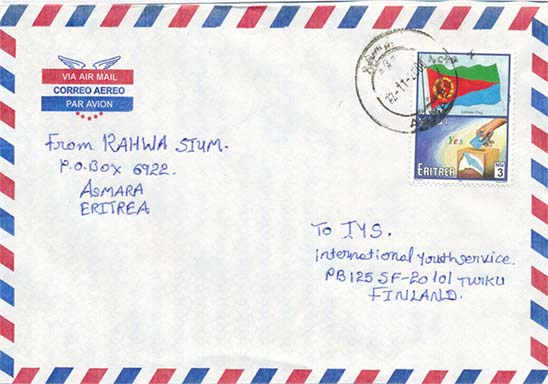 VIA AIR MAIL
CORREO AEREO
PAR AVION
From RAHWA SIUM.
P.O.BOX 6922.
ASMARA
ERITREA
Eritrean Flag
Yes
ERITREA
3
12-11-
To IYS.
international youth service.
PB125 SF-20101 TURKU
FINLAND.